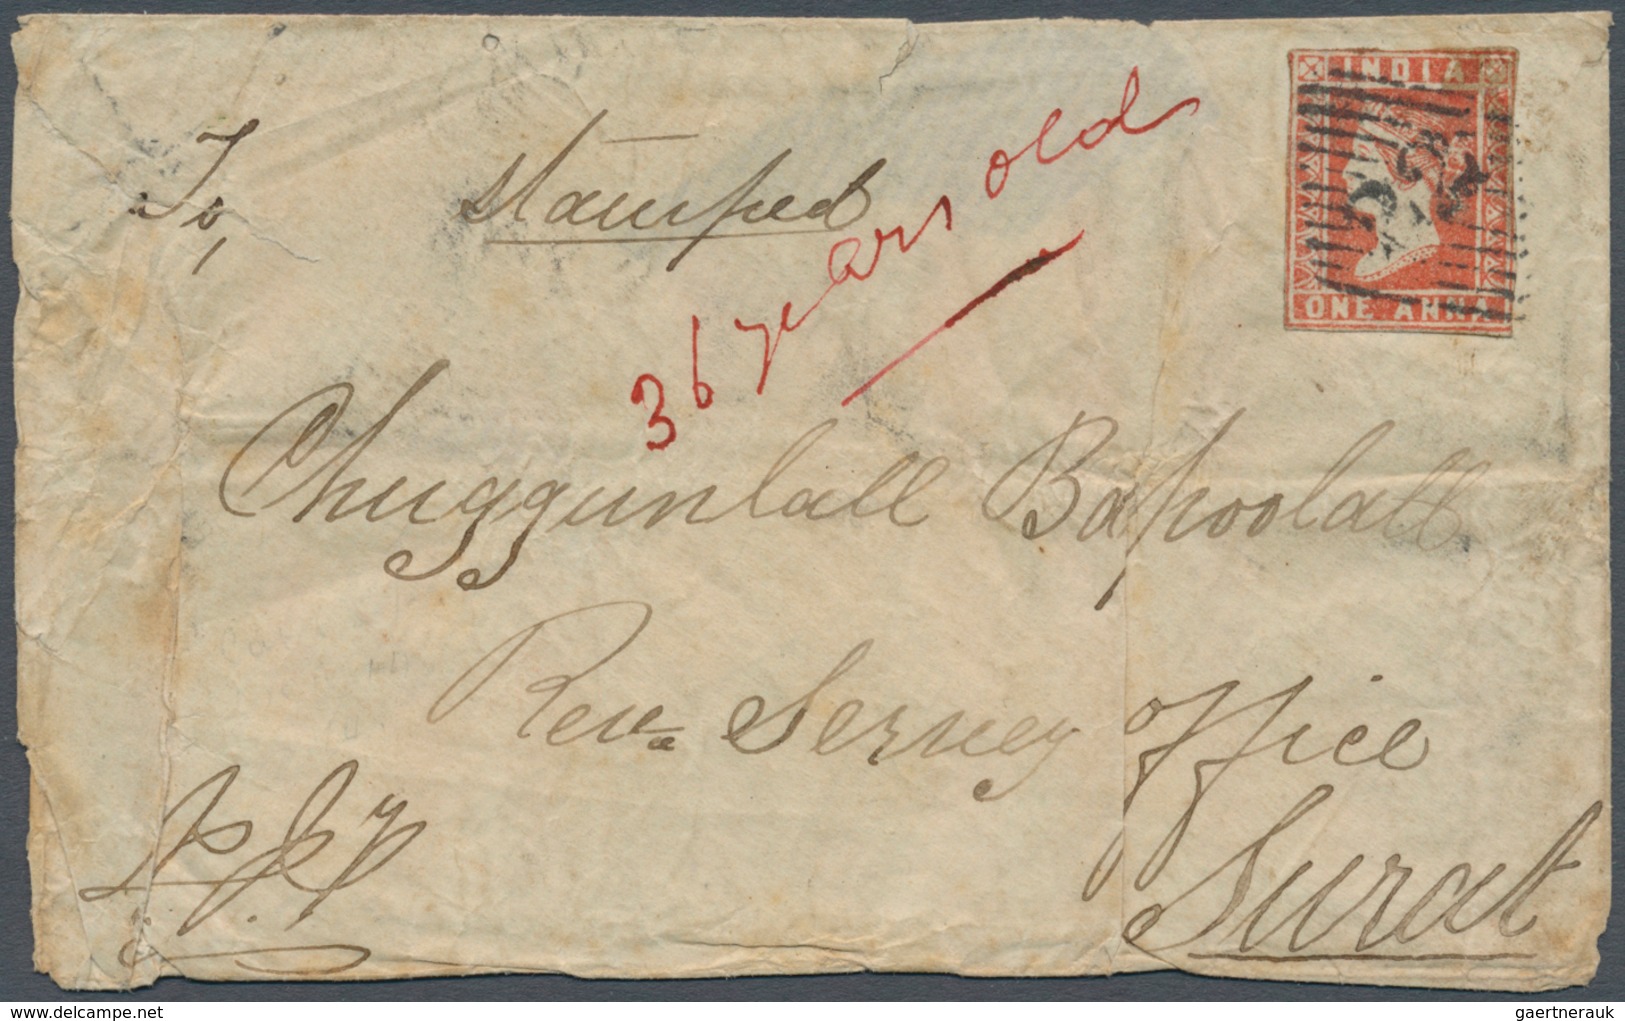 INDIA
ONE ANNA
To,
Stamped
36 years old
Chuggunlall Bapoolall
Reve Servey Office
Surat
delcampe.net
gaertnerauk